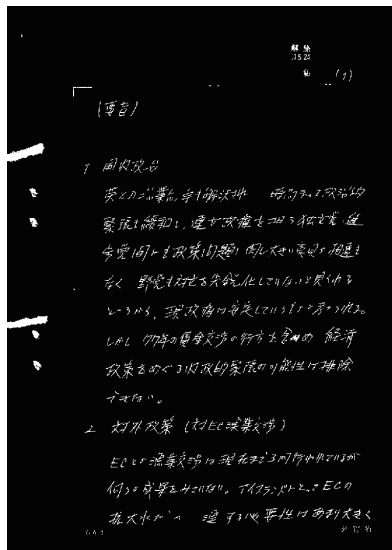 解除
(1)
(要旨)
1 国内政治
英との漁業紛争も解決 政治的
緊張も緩和し、連立政権を担う独立党、進
歩党間にも政策問題に関し大きな意見の相違も
なく 野党も対立を先鋭化していないと見られる
ところから、現政権は安定していると考えられる。
しかし 77年の賃金交渉の行方を含め 経済
政策をめぐる内政的緊張の可能性は排除
できない。
2 対外政策 (対EC漁業交渉)
ECとの漁業交渉は現在まで3回行われているが
何らの成果をみていない。アイスランドにとってECの
拡大水 する必要性はあまり大きく